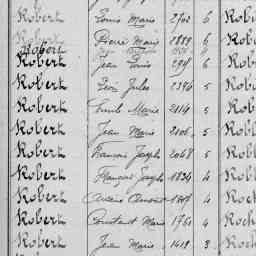 Robert Louis Marie 2702 6 Rob
Robert Pierre Marie 1889 6 Rob
Robert
Robert Jean Louis 294 6 Rob
Robert Jules 2376 5 Rob
Robert Emile Marie 2114 5 Rob
Robert Jean Marie 2106 5 Rob
Robert François Joseph 2068 5 Rob
Robert François Joseph 1834 4 Roc
Robert 4 Roch
Robert Constant Marie 1761 4 Roch
Robert Jean Marie 1418 3 Roch